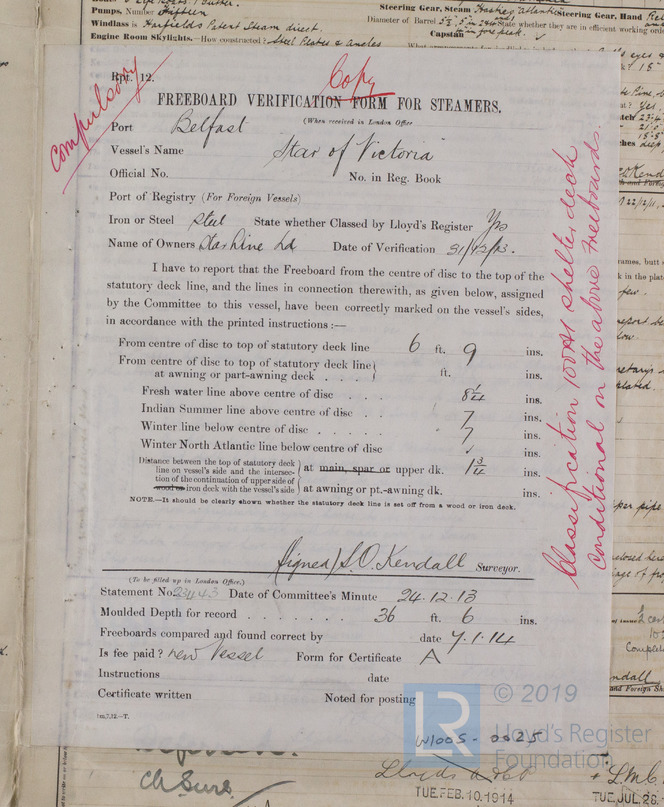 Pumps. Number
Windlass is Harfields Patent Steam direct.
Engine Room Skylights.—How constructed? Steel Plates & angles
Steering Gear, Steam
Steering Gear, Hand
Diameter of Barrel
State whether they are in efficient working order
Capstan
Rpt. 12.
Copy
Compulsory
FREEBOARD VERIFICATION FORM FOR STEAMERS.
(When received in London Office
Port Belfast
Vessel's Name Star of Victoria
Official No. No. in Reg. Book
Port of Registry (For Foreign Vessels)
Iron or Steel Steel State whether Classed by Lloyd's Register Yes
Name of Owners Star Line Ld Date of Verification 31/12/13.
I have to report that the Freeboard from the centre of disc to the top of the
statutory deck line, and the lines in connection therewith, as given below, assigned
by the Committee to this vessel, have been correctly marked on the vessel's sides,
in accordance with the printed instructions :—
From centre of disc to top of statutory deck line 6 ft. 9 ins.
From centre of disc to top of statutory deck line
at awning or part-awning deck . . . . ft. ins.
Fresh water line above centre of disc . . . 8 1/4 ins.
Indian Summer line above centre of disc . . 7 ins.
Winter line below centre of disc . . . . 7 ins.
Winter North Atlantic line below centre of disc ins.
Distance between the top of statutory deck
line on vessel's side and the intersec-
tion of the continuation of upper side of
wood or iron deck with the vessel's side
at main, spar or upper dk. 1 3/4 ins.
at awning or pt.-awning dk. ins.
NOTE.—It should be clearly shown whether the statutory deck line is set off from a wood or iron deck.
(Signed) S.O. Kendall Surveyor.
(To be filled up in London Office.)
Statement No. Date of Committee's Minute 24.12.13
Moulded Depth for record . . . . . . . 36 ft. 6 ins.
Freeboards compared and found correct by date 7.1.14
Is fee paid? new Vessel Form for Certificate A
Instructions date
Certificate written Noted for posting
1m,7,12.—T.
Classification 100A1 shelter deck
conditional on the above freeboards.
LR © 2019
Lloyd's Register
Foundation
W1005-0025
TUE. FEB. 10. 1914
TUE. JUL. 28